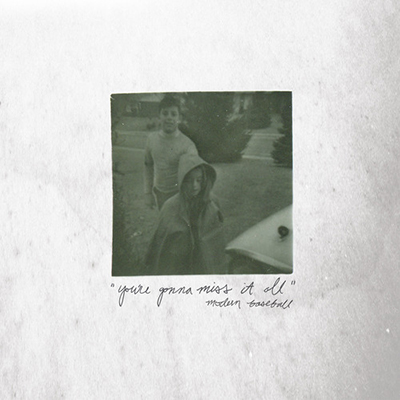 "you're gonna miss it all"
modern baseball